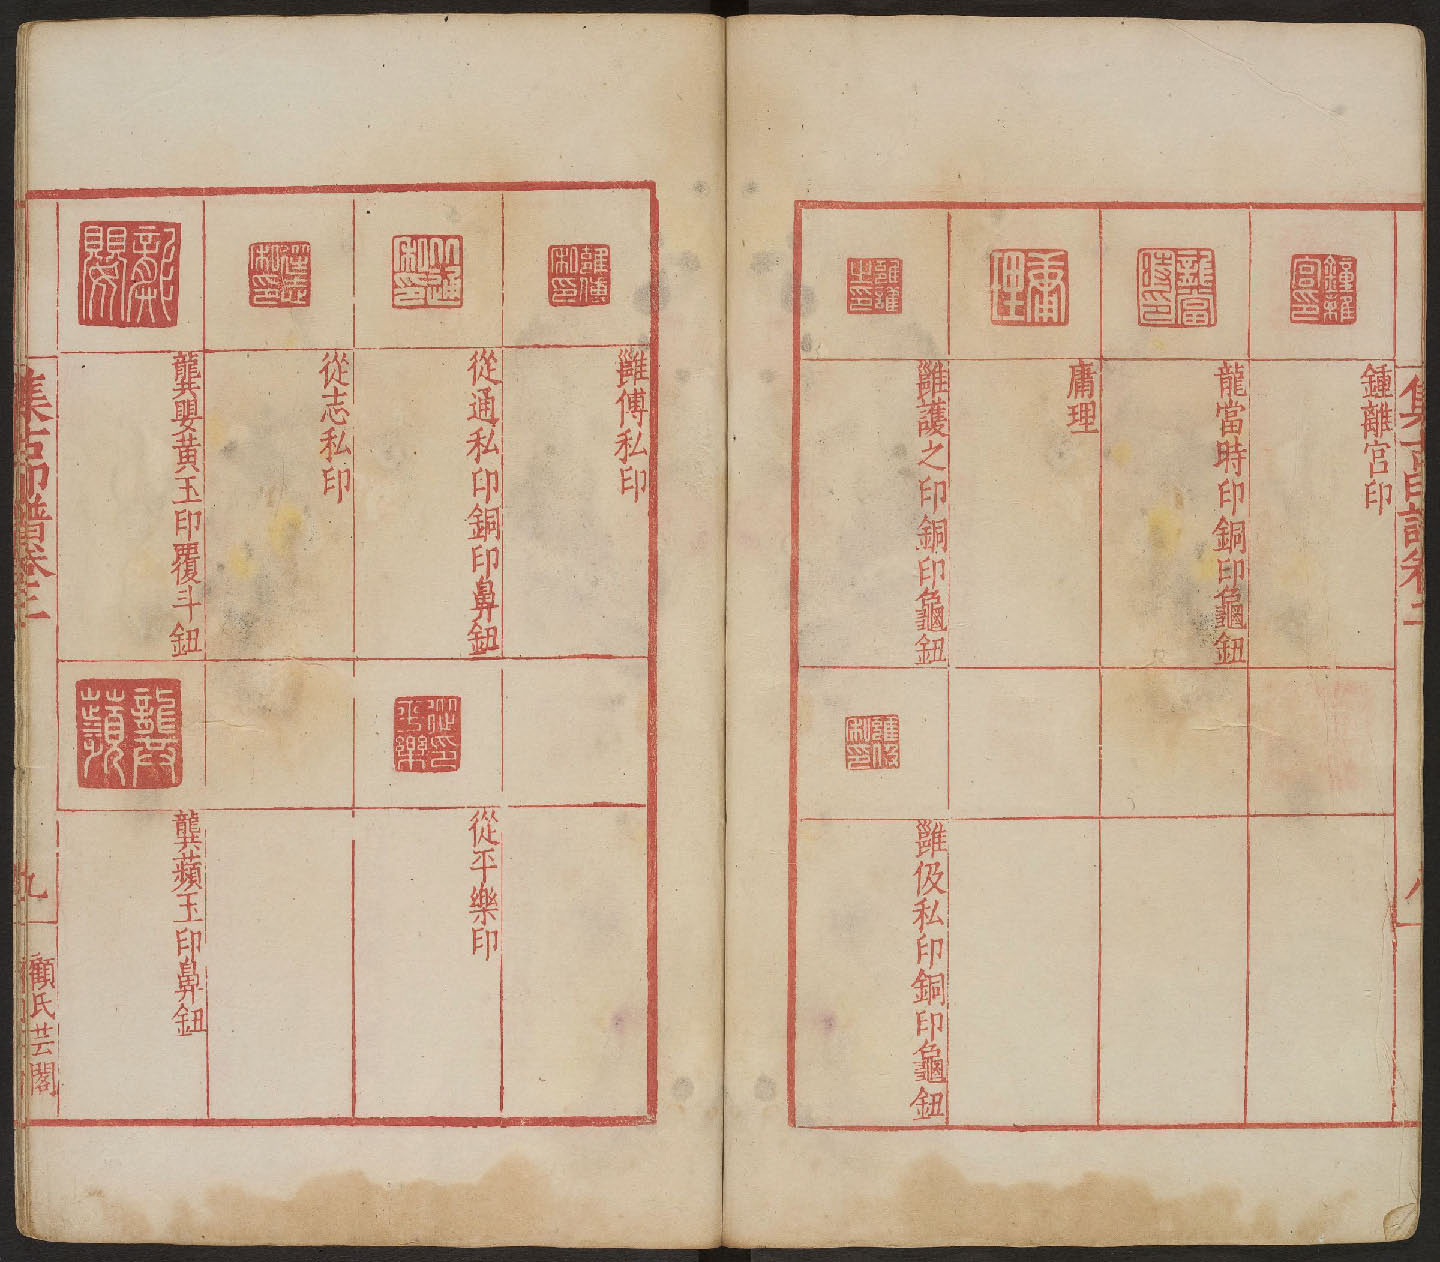 鍾離宫印
龍當時印銅印龜鈕
庸理
雝護之印銅印龜鈕
雝伋私印銅印龜鈕
雝傅私印
從通私印銅印鼻鈕
從平樂印
從志私印
龔嬰黄玉印覆斗鈕
龔蘋玉印鼻鈕
集古印譜卷三
九
顧氏芸閣